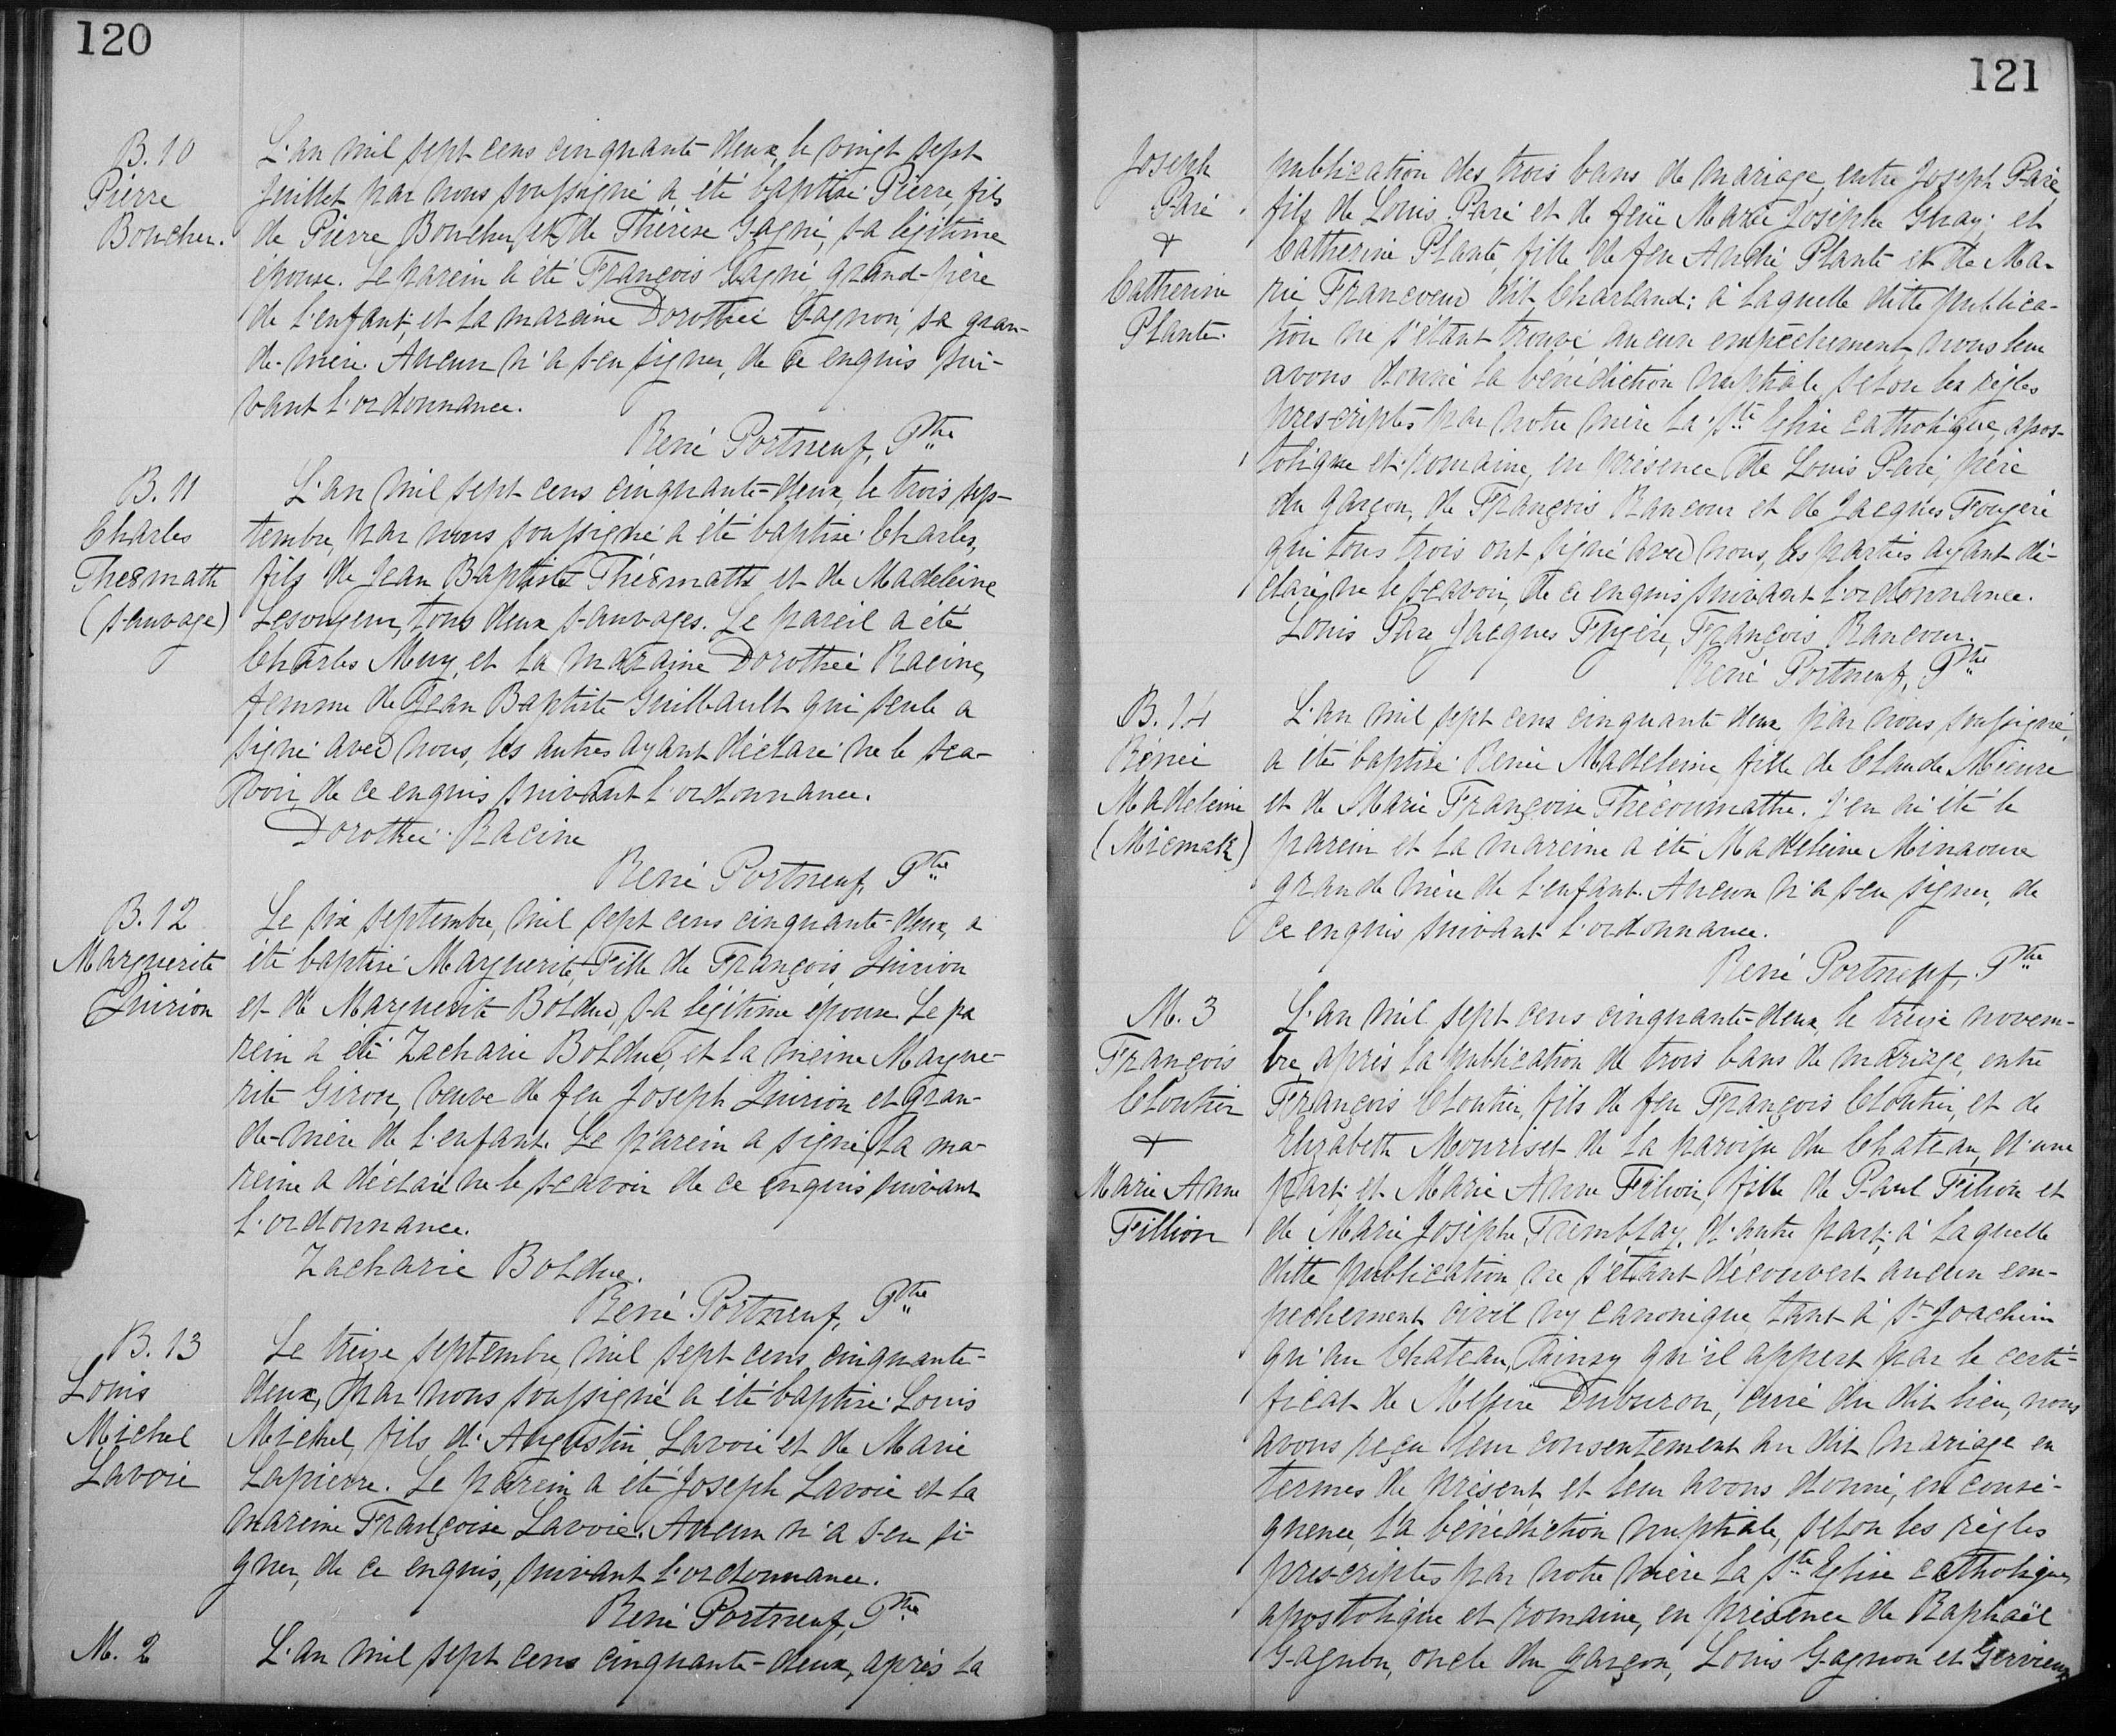 120
B. 10
Pierre
Boucher.
L'an mil sept cens cinquante deux, le vingt sept
Juillet par nous soussigné a été baptisé Pierre fils
de Pierre Boucher, et de Thérèse Gagné, sa légitime
épouse. Le parein a été François Gagné grand-père
de l'enfant, et la mareine Dorothée Gagnon, sa gran-
de-mère. Aucun n'a sceu signer, de ce enquis sui-
vant l'ordonnance.
René Portneuf, Ptre
B. 11
Charles
The8math
(sauvage)
L'an mil sept cens cinquante-deux, le trois sep-
tembre, par nous soussigné a été baptisé Charles,
fils de Jean Baptiste Thé8matts et de Madeleine
Lesougeur, tous deux sauvages. Le pareil a été
Charles Muy, et la maraine Dorothée Racine,
femme de Jean Baptiste Guilbault qui seule a
signé avec nous, les autres ayant déclaré ne le sca-
voir, de ce enquis suivant l'ordonnance.
Dorothée Racine
René Portneuf, Ptre
B. 12
Marguerite
Quirion
Le six septembre, mil sept cens cinquante-deux, a
été baptisé Marguerite, Fille de François Quirion
et de Marguerite Bolduc, sa légitime épouse. Le pa
rein a été Zacharie Bolduc, et la meine Margue-
rite Giron, veuve de feu Joseph Quirion et gran-
de-mère de l'enfant. Le parein a signé, la ma-
reine a déclaré ne le scavoir de ce enquis suivant
l'ordonnance.
Zacharie Bolduc.
René Portneuf, Ptre
B. 13
Louis
Michel
Lavoie
Le treize septembre, mil sept cens, cinquante-
deux, par nous soussigné a été baptisé Louis
Michel, fils d'Augustin Lavoie et de Marie
Lapierre. Le parein a été Joseph Lavoie et la
mareine Françoise Lavoie. Aucun n'a sceu si-
gner, de ce enquis, suivant l'ordonnance.
René Portneuf, Ptre
M. 2
L'an mil sept cens cinquante-deux, après la
121
Joseph
Paré
+
Catherine
Plante.
publication des trois bans de mariage, entre Joseph Paré
fils de Louis Paré et de feüe Marie Josèphe Guay; et
Catherine Plante, fille de feu André Plante et de Ma-
rie Francoeur dit Charland; à laquelle ditte publica-
tion ne s'étant trouvé aucun empêchement, nous leur
avons donné la bénédiction nuptiale selon les règles
prescriptes par notre mère la ste Eglise catholique, apos-
tolique et romaine, en présence de Louis Paré, père
du garçon, de François Rancour et de Jacques Fougère
qui tous trois ont signé avec nous, les parties ayant dé-
claré ne le scavoir, de ce enquis suivant l'ordonnance.
Louis Pare, Jacques Fugère, François Rancour.
René Portneuf, Ptre
B. 14
Rénée
Madeleine
(Micmak)
L'an mil sept cens cinquante deux par nous soussigné,
a été baptisé Renée Madeleine fille de Claude Micure
et de Marie Françoise Thécoumathe. J'en ai été le
parein et la mareine a été Madeleine Minavure
grande mère de l'enfant. Aucun n'a sceu signer, de
ce enquis suivant l'ordonnance.
René Portneuf, Ptre
M. 3
François
Cloutier
+
Marie Anne
Fillion
L'an mil sept cens cinquante-deux, le treize novem-
bre, après la publication de trois bans de mariage, entre
François Cloutier, fils de feu François Cloutier, et de
Elizabeth Mouriset de la paroisse du Chateau, d'une
part; et Marie Anne Filion, fille de Paul Filion et
de Marie Josèphe Tremblay, d'autre part; à laquelle
ditte publication, ne s'étant découvert aucun em-
pechement civil ny canonique tant à St Joachim
qu'au Chateau, Ainsy qu'il appert par le certi-
ficat de Messire Duburon, curé du dit lieu, nous
avons reçu leur consentement au dit mariage en
termes de présent, et leur avons donné, en consé-
quence, la bénédiction nuptiale, selon les règles
prescriptes par notre mère la ste Eglise catholique,
apostolique et romaine, en présence de Raphaël
Gagnon, oncle du garçon, Louis Gagnon et Gervieux